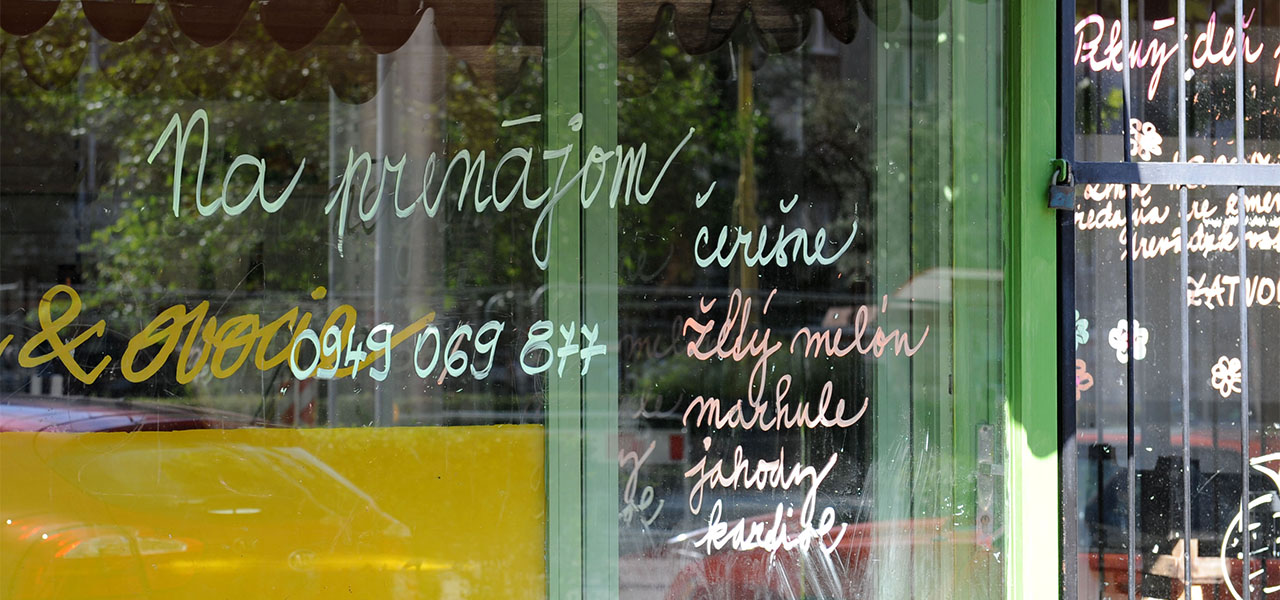 Na prenájom
& ovocie
0949 069 877
čerešne
žltý melón
marhule
jahody
Pekný deň
ZATVO